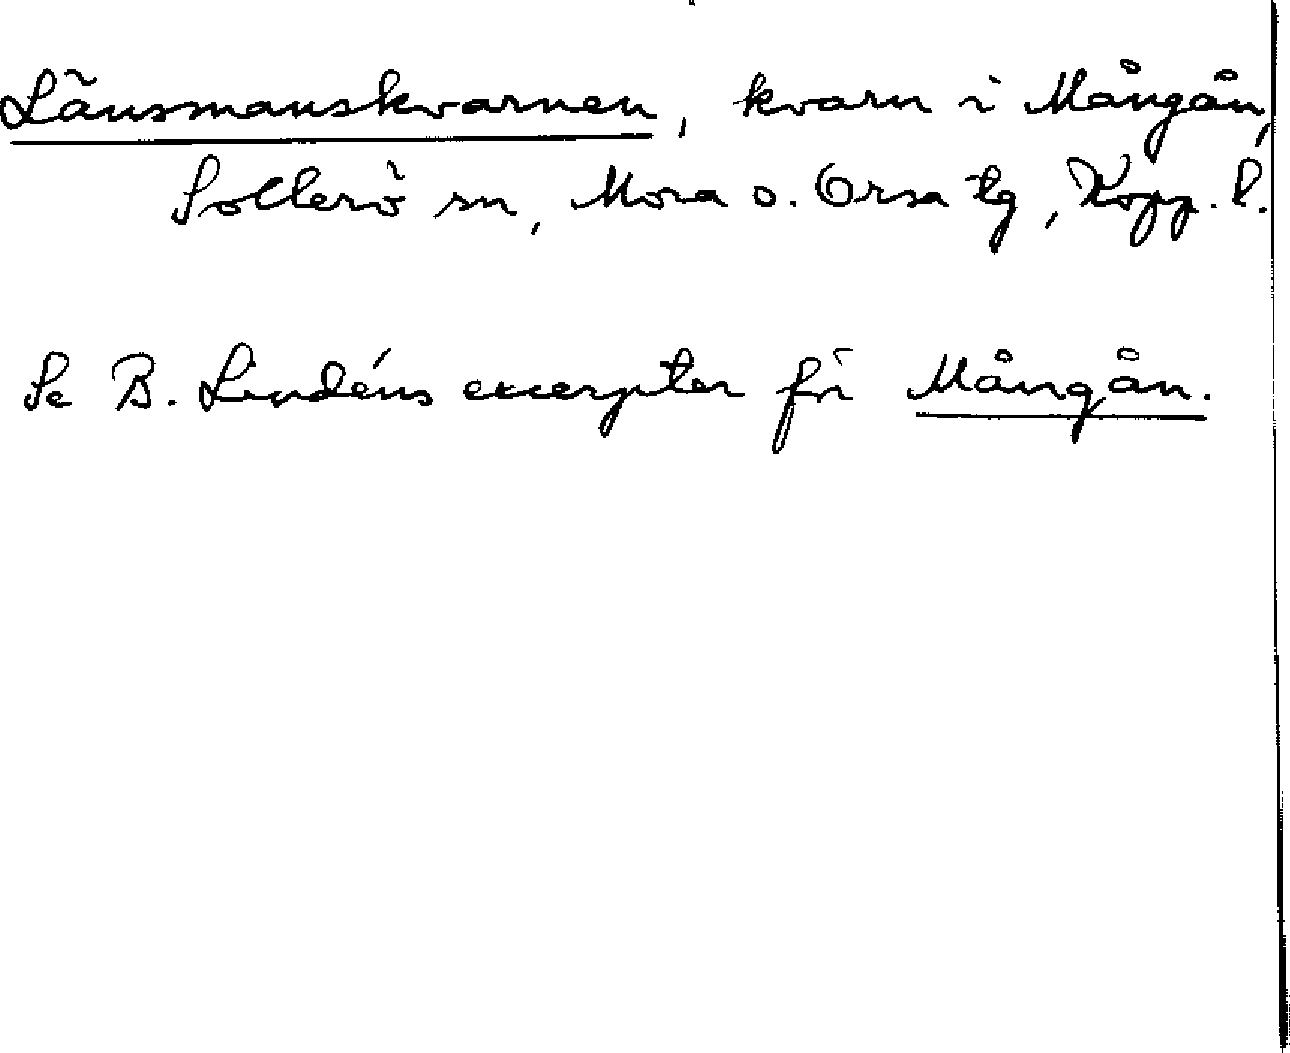 Länsmanskvarnen, kvarn i Mångån,
Sollerö sn, Mora o. Orsa tg, Kopp. l.
Se B. Lindéns excerpter för Mångån.